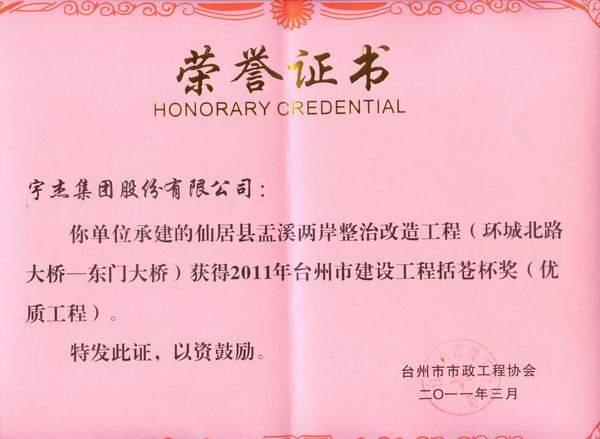 荣誉证书
HONORARY CREDENTIAL
宇杰集团股份有限公司：
你单位承建的仙居县盂溪两岸整治改造工程（环城北路
大桥—东门大桥）获得2011年台州市建设工程括苍杯奖（优
质工程）。
特发此证，以资鼓励。
台州市市政工程协会
二〇一一年三月